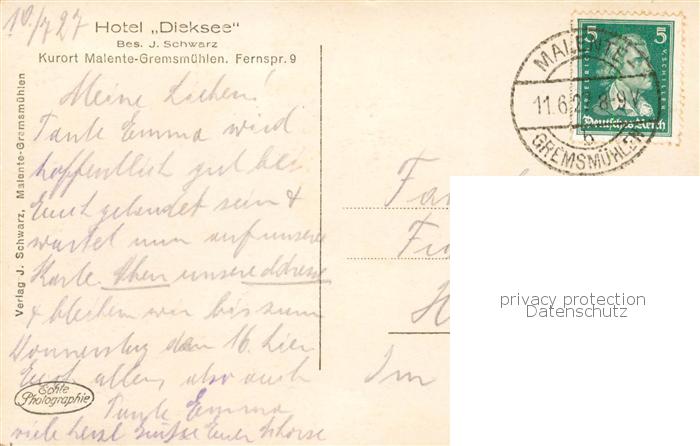 10/7 27
Hotel „Dieksee"
Bes. J. Schwarz
Kurort Malente-Gremsmühlen. Fernspr. 9
Meine Lieben!
Tante Emma wird
hoffentlich gut bei
Euch gelandet sein &
wartet nun auf unsere
Karte. unsere Adresse
& bleiben wir bis zum
Donnerstag den 16. hier
Euch allen, also auch
Tante Emma
viele herzl Grüsse Euer
Verlag J. Schwarz, Malente-Gremsmühlen
Echte
Photographie
MALENTE
11.6.27 8-9V
b
GREMSMÜHLEN
5 5
FRIEDRICH V. SCHILLER
Deutsches Reich
Fa
F
H
Im
privacy protection
Datenschutz